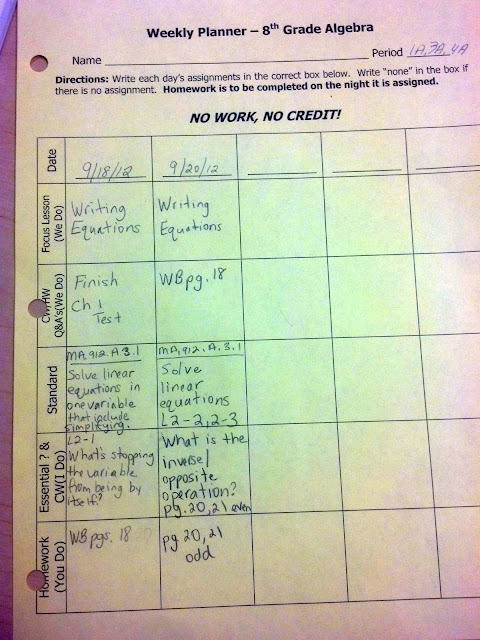 Weekly Planner – 8th Grade Algebra
Name Period 1A, 3A, 4A
Directions: Write each day's assignments in the correct box below. Write "none" in the box if
there is no assignment. Homework is to be completed on the night it is assigned.
NO WORK, NO CREDIT!
Date
9/18/12
9/20/12
Focus Lesson
(We Do)
Writing
Equations
Writing
Equations
CW/HW
Q&A's(We Do)
Finish
Ch 1
Test
WB pg. 18
Standard
MA.912.A.3.1
Solve linear
equations in
one variable
that include
simplifying.
MA.912.A.3.1
Solve
linear
equations
L2-2, 2-3
Essential ? &
CW(I Do)
L2-1
What's stopping
the variable
from being by
itself?
What is the
inverse/
opposite
operation?
pg. 20, 21 even
Homework
(You Do)
WB pgs. 18
pg 20, 21
odd